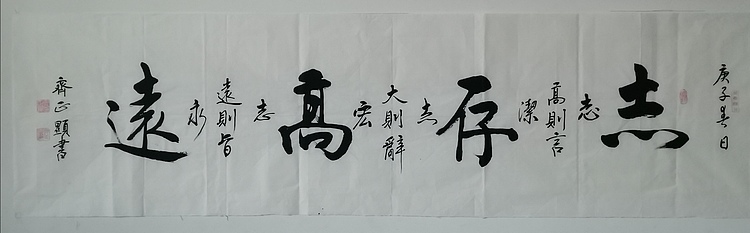 庚子春日
志
志
高則言
潔
存
志
大則辭
宏
高
志
遠則旨
永
遠
齊正顯書